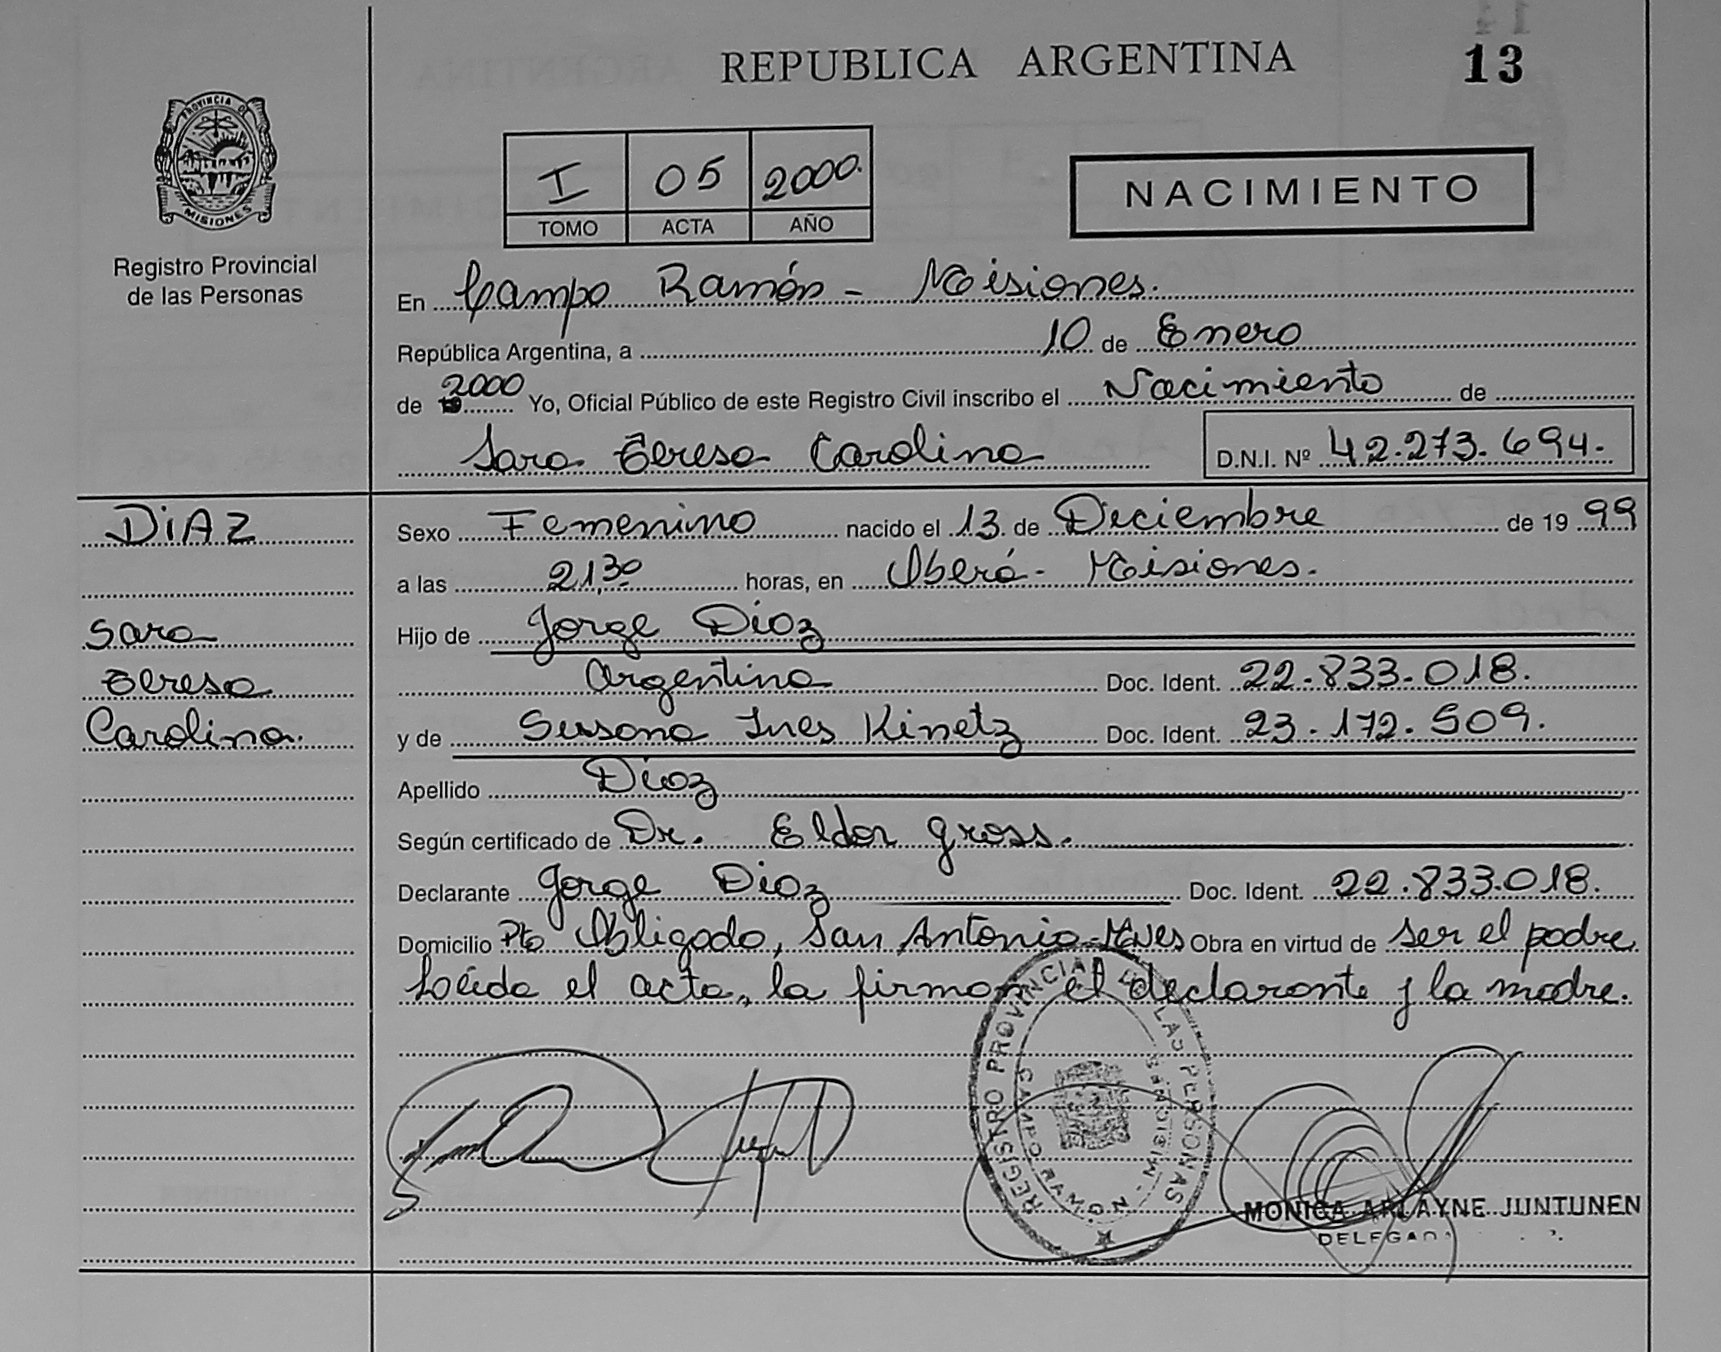 REPUBLICA ARGENTINA 13
PROVINCIA DE
MISIONES
Registro Provincial
de las Personas
I 05 2000.
TOMO ACTA AÑO
NACIMIENTO
En Campo Ramón - Misiones.
República Argentina, a 10 de Enero
de 2000 Yo, Oficial Público de este Registro Civil inscribo el Nacimiento de
Sara Teresa Carolina D.N.I. Nº 42.273.694.
DiAZ
Sara
Teresa
Carolina.
Sexo Femenino nacido el 13 de Deciembre de 19 99
a las 21,30 horas, en Oberá - Misiones.
Hijo de Jorge Diaz
Argentina Doc. Ident. 22.833.018.
y de Susana Ines Kinetz Doc. Ident. 23.172.509.
Apellido Diaz
Según certificado de Dr. Eldor Gross.
Declarante Jorge Diaz Doc. Ident. 22.833.018.
Domicilio Pto Obligado, San Antonio - Mnes Obra en virtud de ser el padre
Leida el acta, la firman el declarante y la madre.
REGISTRO PROVINCIAL DE LAS PERSONAS
CAMPO RAMON - MISIONES
MONICA ARLAYNE JUNTUNEN